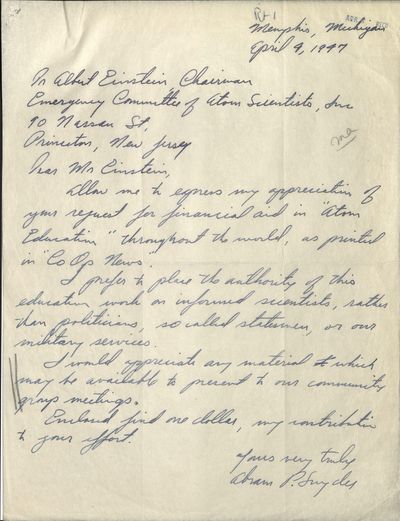 R-1
Memphis, Michigan
April 9, 1947
Dr Albert Einstein Chairman
Emergency Committee of Atom Scientists, Inc
90 Nassau St,
Princeton, New Jersey
Dear Mr Einstein,
Allow me to express my appreciation of
your request for financial aid in "Atom
Education" throughout the world, as printed
in "Co Op News".
I prefer to place the authority of this
education work on informed scientists, rather
than politicians, so called statesmen, or our
military services.
I would appreciate any material which
may be available to present to our community
group meetings.
Enclosed find one dollar, my contribution
to your effort.
Yours very truly
Abram P. Snyder